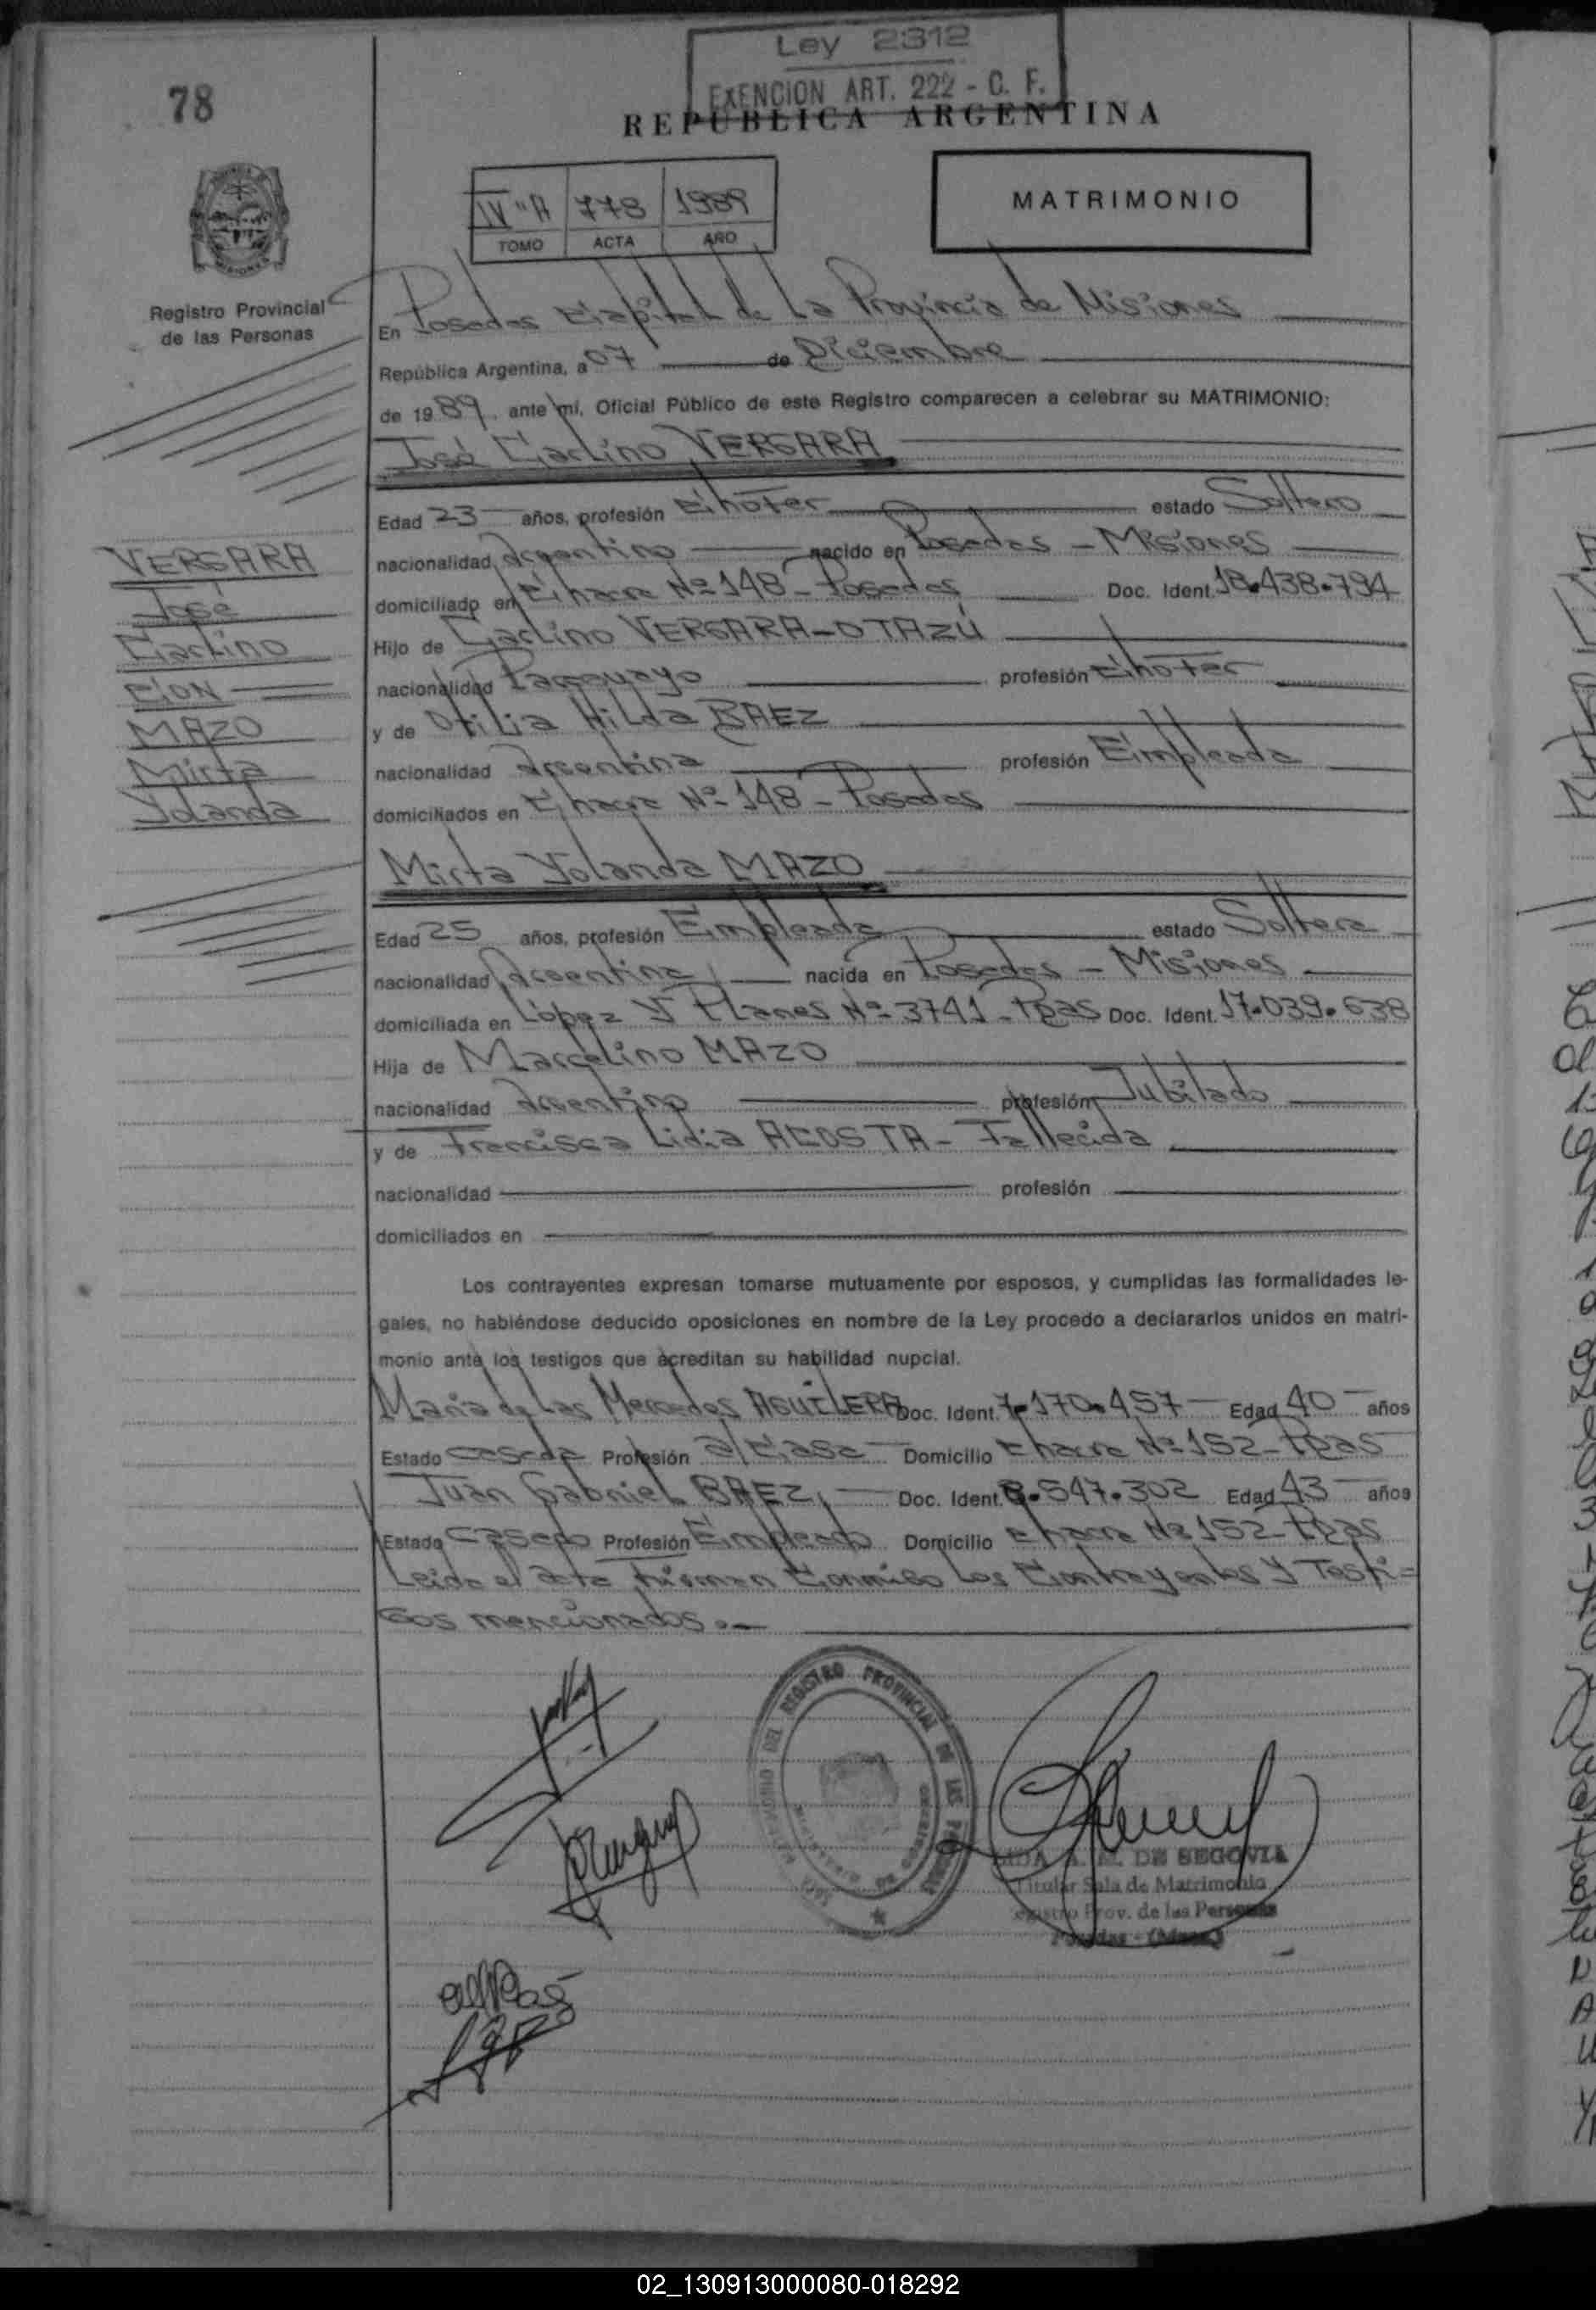 78
Ley 2312
EXENCION ART. 222 - C. F.
REPUBLICA ARGENTINA
IV "A 778 1989
TOMO ACTA AÑO
MATRIMONIO
Registro Provincial
de las Personas
En Posadas Capital de La Provincia de Misiones
República Argentina, a 07 de Diciembre
de 1989 ante mí, Oficial Público de este Registro comparecen a celebrar su MATRIMONIO:
José Carlino VERGARA
Edad 23 años, profesión Chofer estado Soltero
nacionalidad Argentino nacido en Posadas - Misiones
domiciliado en Chacra Nº 148 - Posadas Doc. Ident. 18.438.794
Hijo de Carlino VERGARA-OTAZÚ
nacionalidad Paraguayo profesión Chofer
y de Otilia Hilda BAEZ
nacionalidad Argentina profesión Empleada
domiciliados en Chacra Nº 148 - Posadas
VERGARA
José
Carlino
CON
MAZO
Mirta
Yolanda
Mirta Yolanda MAZO
Edad 25 años, profesión Empleada estado Soltera
nacionalidad Argentina nacida en Posadas - Misiones
domiciliada en López Y Planes Nº 3741 - Pdas Doc. Ident. 17.039.638
Hija de Marcelino MAZO
nacionalidad Argentino profesión Jubilado
y de Francisca Lidia ACOSTA - Fallecida
nacionalidad profesión
domiciliados en
Los contrayentes expresan tomarse mutuamente por esposos, y cumplidas las formalidades le-
gales, no habiéndose deducido oposiciones en nombre de la Ley procedo a declararlos unidos en matri-
monio ante los testigos que acreditan su habilidad nupcial.
Maria de Las Mercedes AGUILERA Doc. Ident. 7.170.457 Edad 40 años
Estado casada Profesión a/Casa Domicilio Chacra Nº 152 - Pdas
Juan Gabriel BAEZ, Doc. Ident. 8.547.302 Edad 43 años
Estado casado Profesión Empleado Domicilio Chacra Nº 152 - Pdas
Leida el acta firman Conmigo Los Contrayentes Y Testi=
gos mencionados.-
REGISTRO PROVINCIAL DE LAS PERSONAS
DE SEGOVIA
Titular Sala de Matrimonio
Prov. de las Personas
Posadas - (Mnes)
02_130913000080-018292